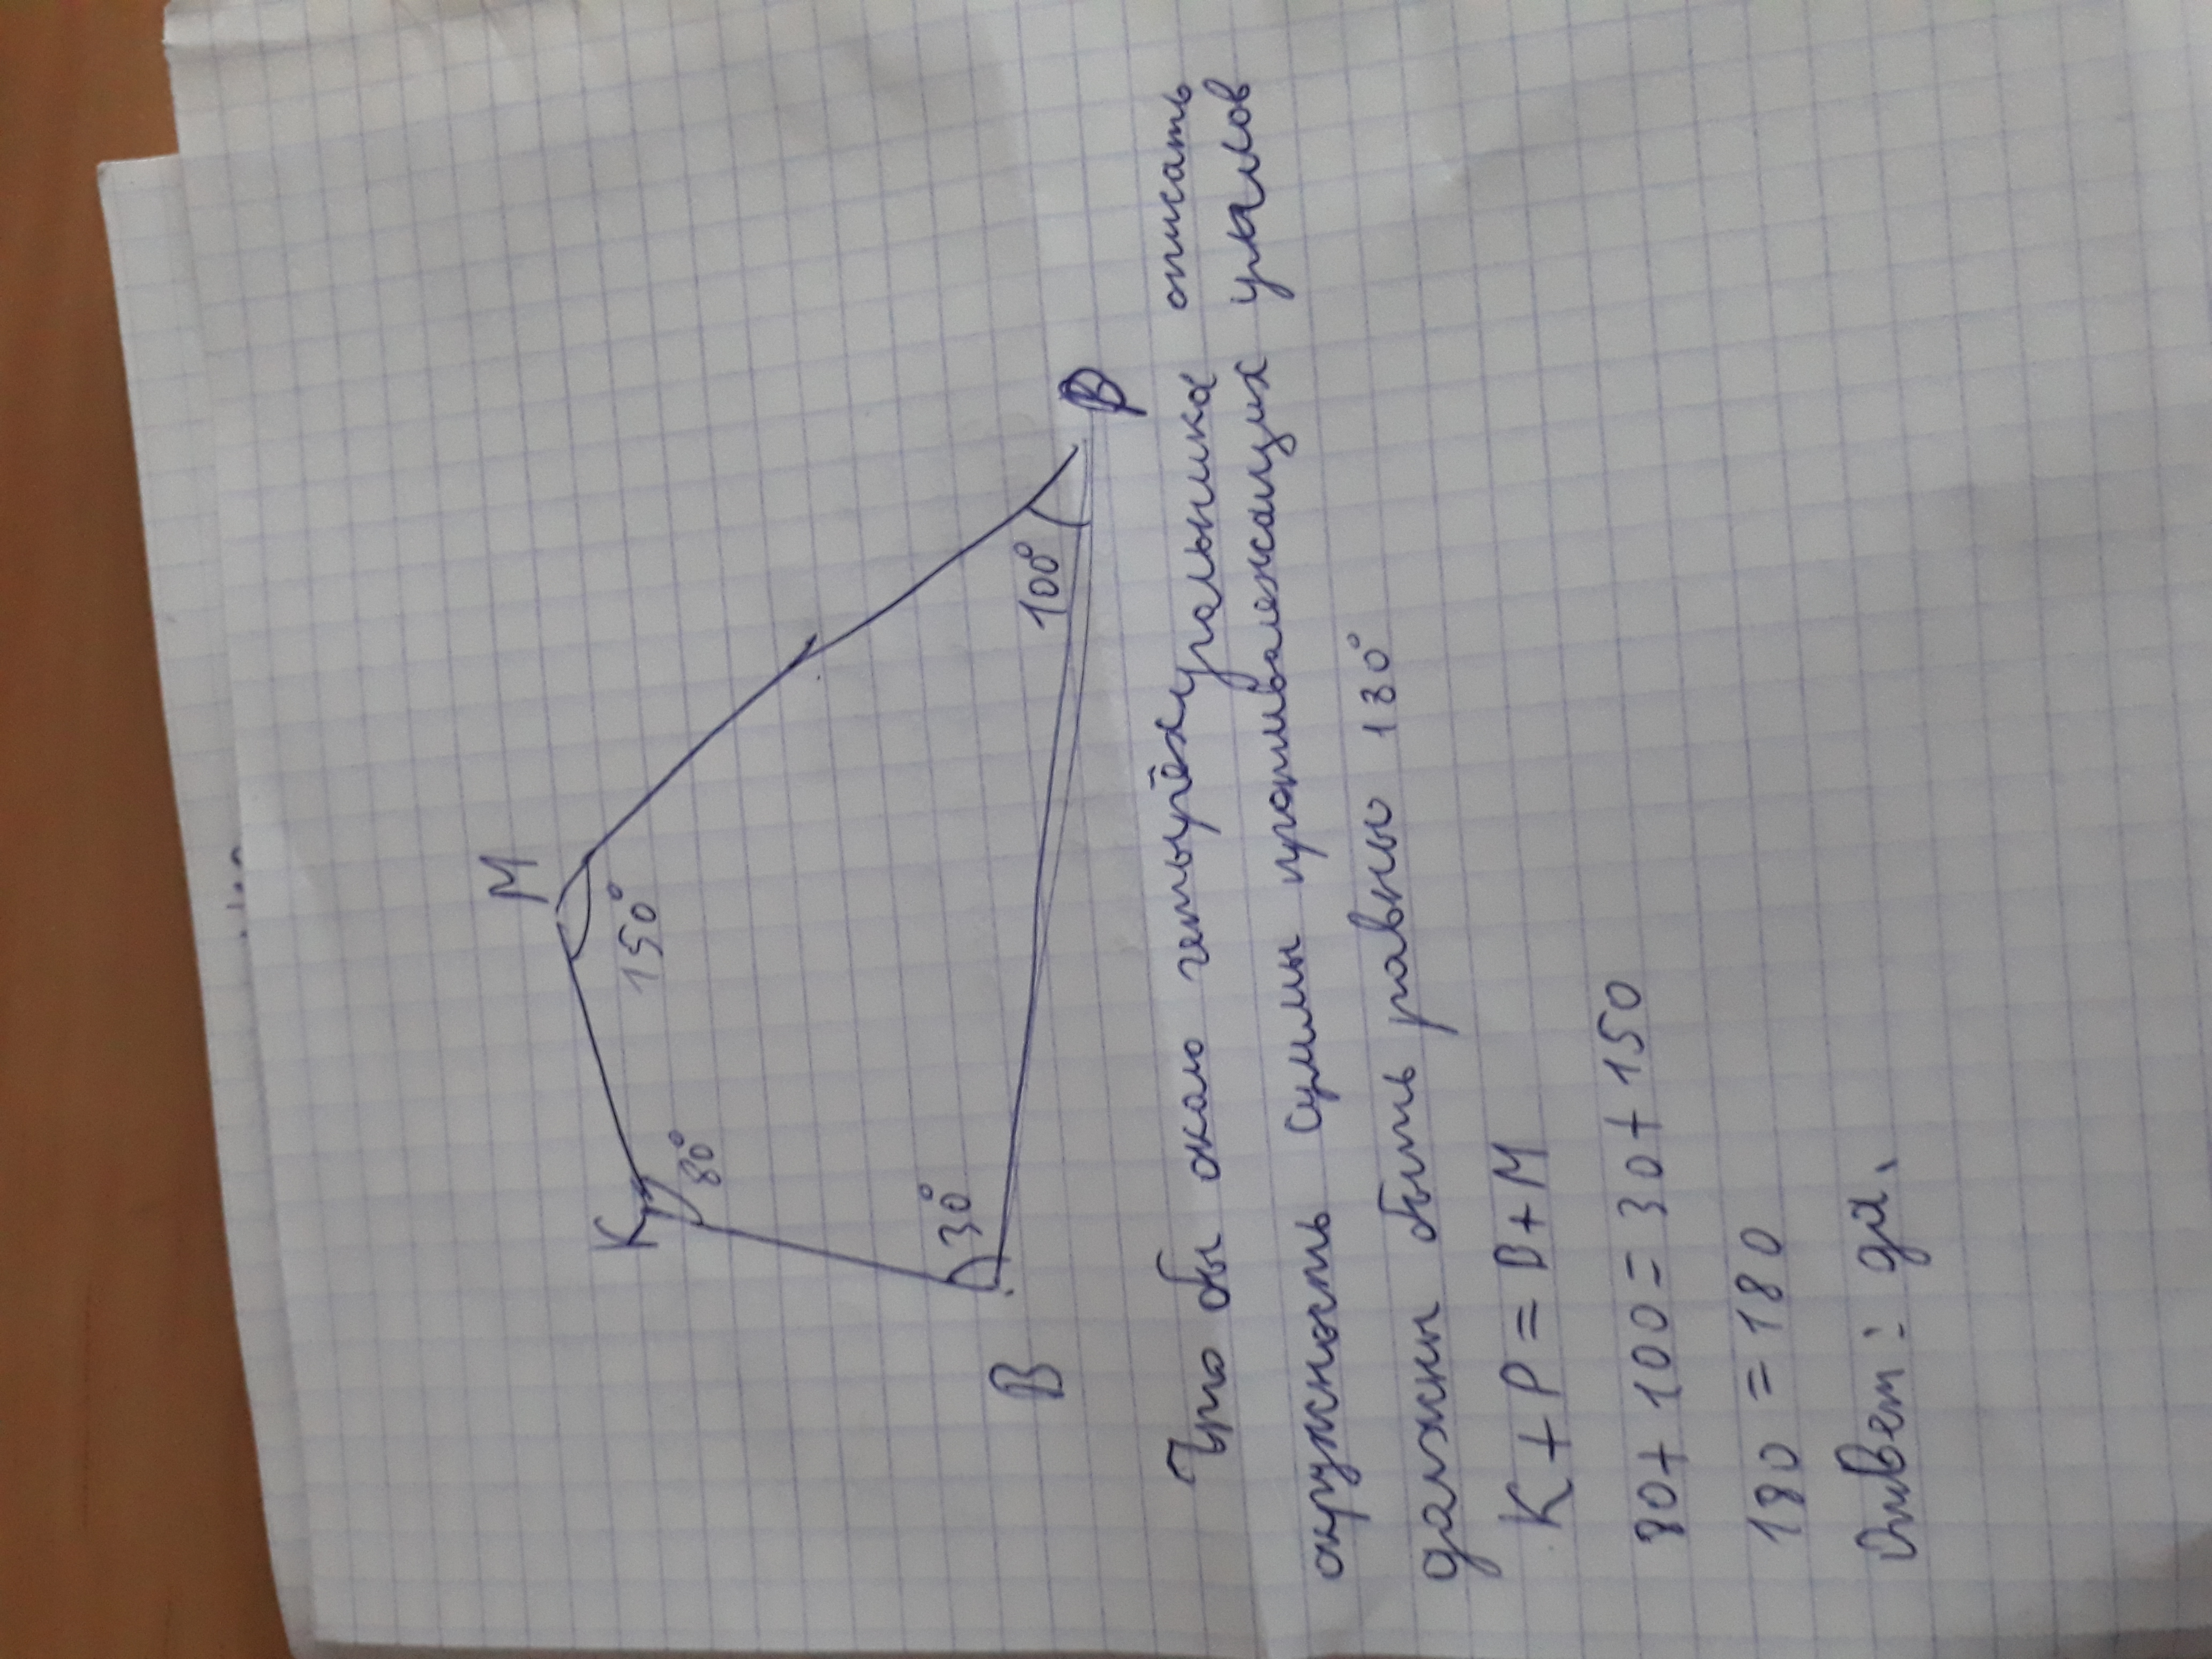 М
К
150°
80°
30°
100°
В
Р
Что бы около четырёхугольника описать
окружность суммы противолежащих уналов
должны быть равны 180°
К + Р = В + М
80 + 100 = 30 + 150
180 = 180
Ответ: да.